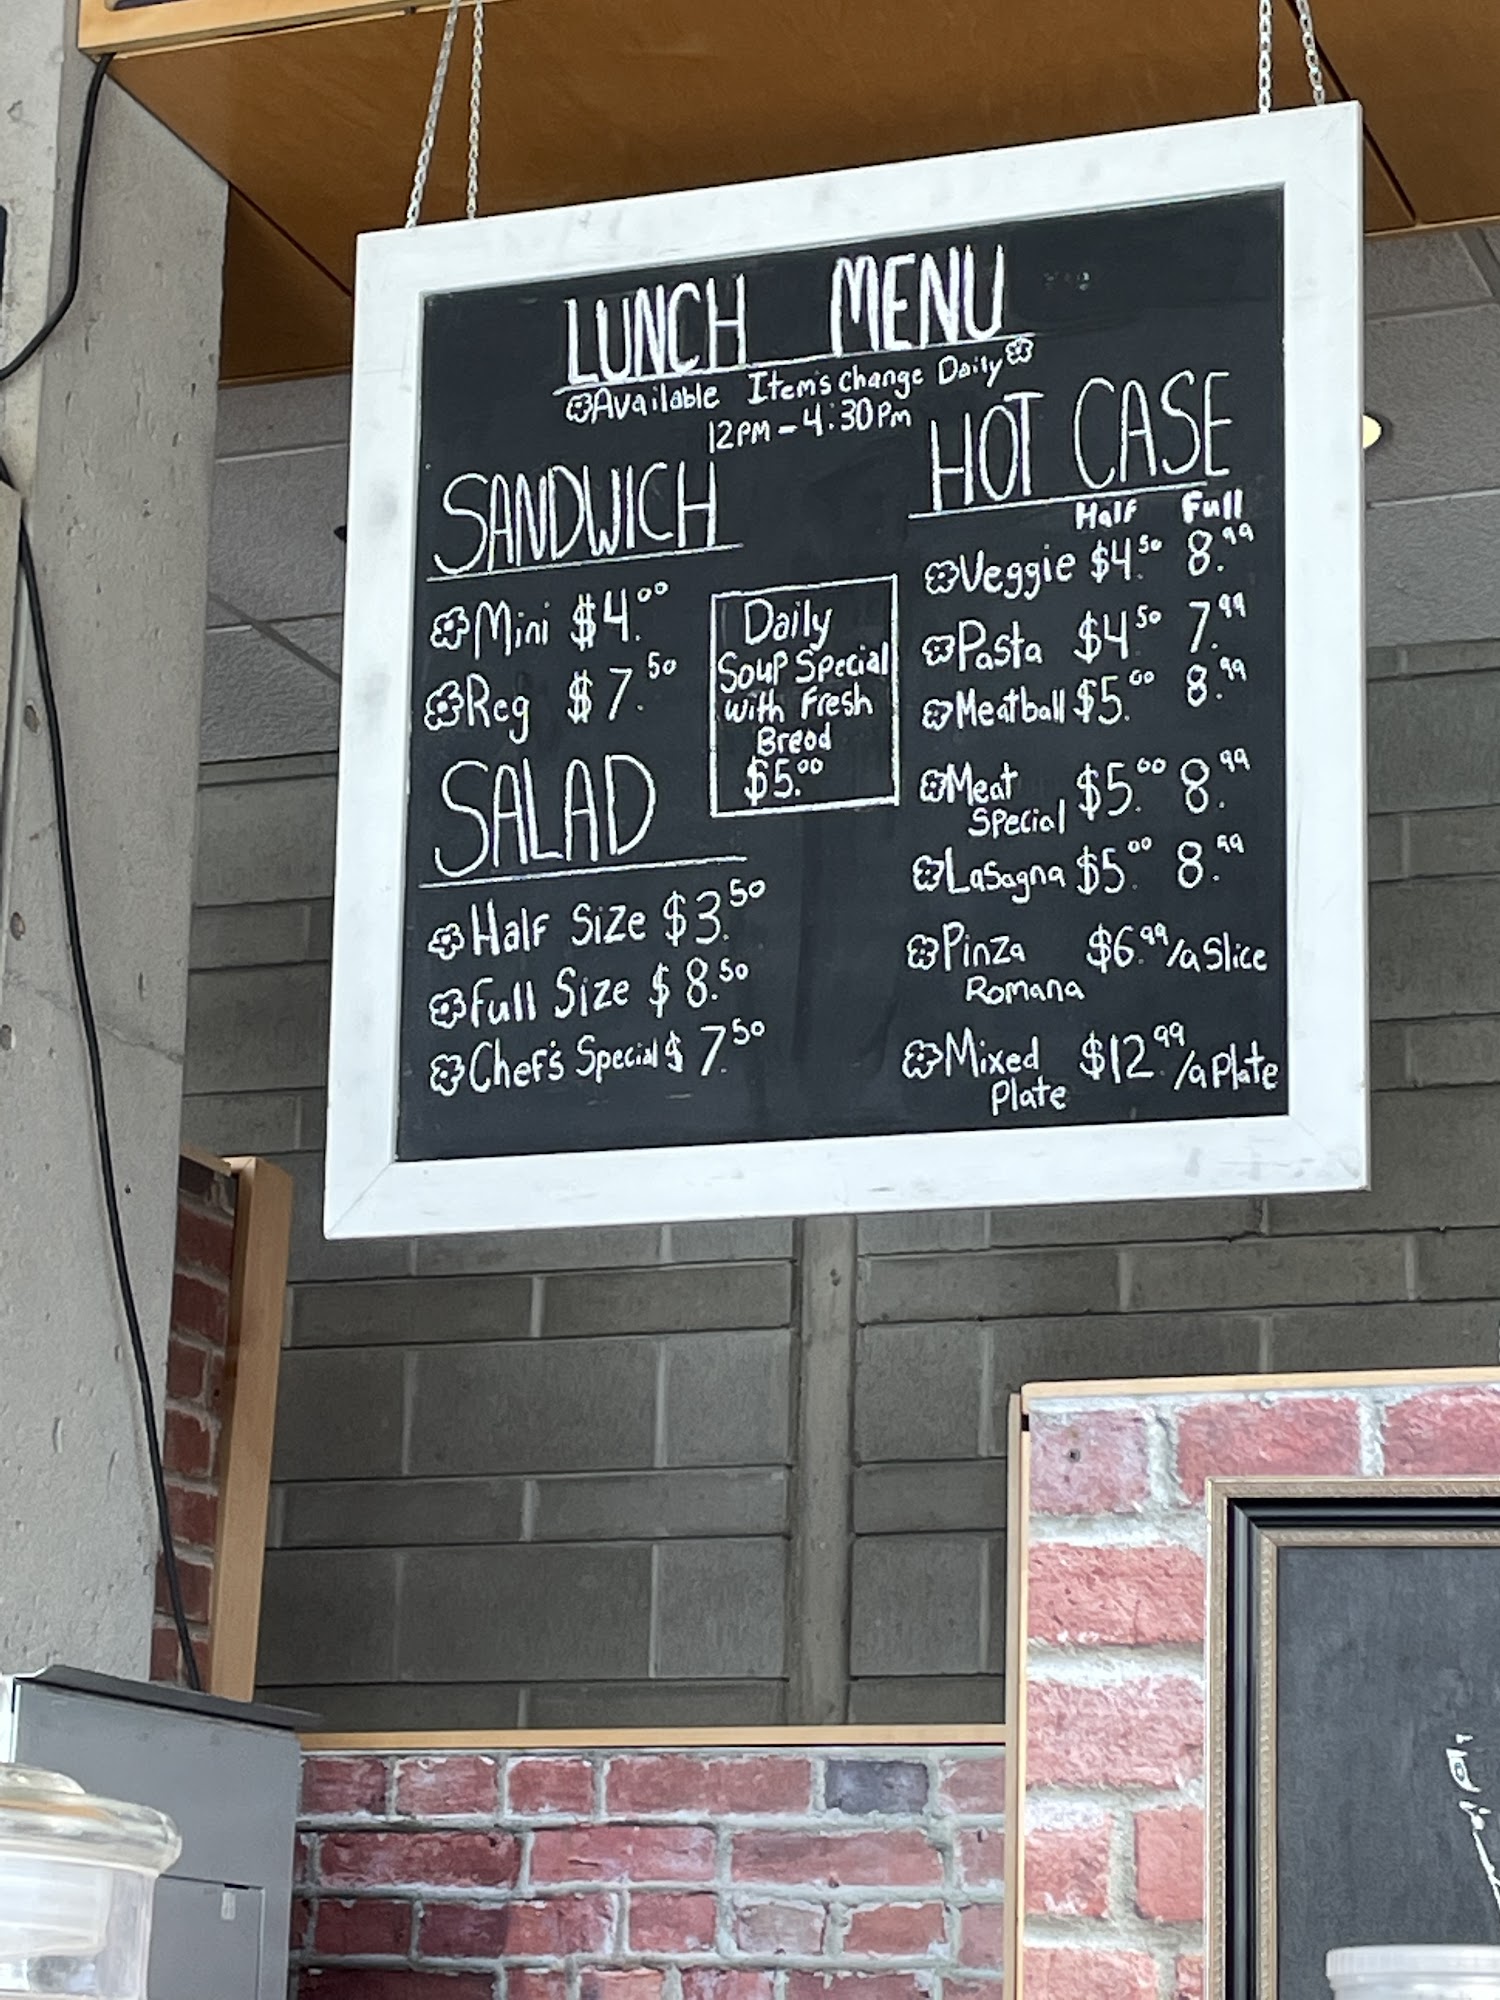 LUNCH MENU
Available Items change Daily
12PM - 4:30PM
SANDWICH
Mini $4.00
Reg $7.50
SALAD
Half Size $3.50
Full Size $8.50
Chef's Special $7.50
Daily
Soup Special
with Fresh
Bread
$5.00
HOT CASE
Half Full
Veggie $4.50 8.99
Pasta $4.50 7.99
Meatball $5.00 8.99
Meat $5.00 8.99
Special
Lasagna $5.00 8.99
Pinza $6.99/a Slice
Romana
Mixed $12.99/a Plate
Plate